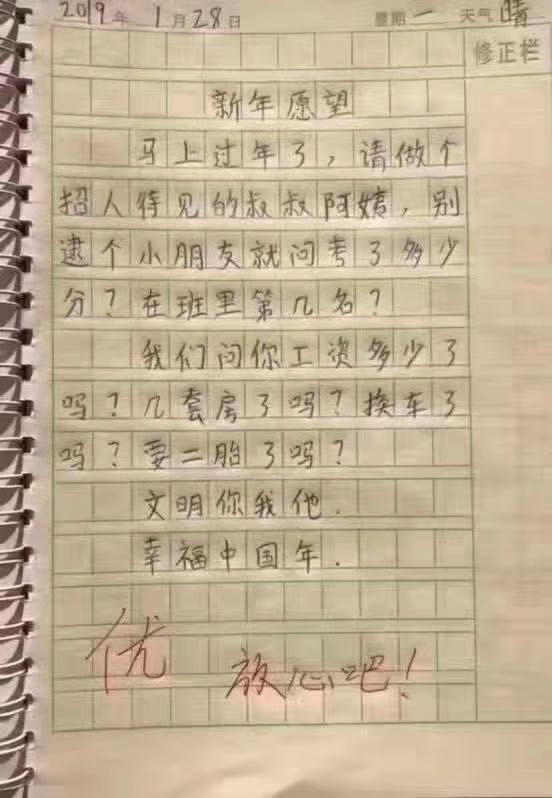 2019年1月28日 星期一 天气晴
修正栏
新年愿望
马上过年了，请做个
招人待见的叔叔阿姨，别
逮个小朋友就问考了多少
分？在班里第几名？
我们问你工资多少了
吗？几套房了吗？换车了
吗？要二胎了吗？
文明你我他.
幸福中国年.
优 放心吧！